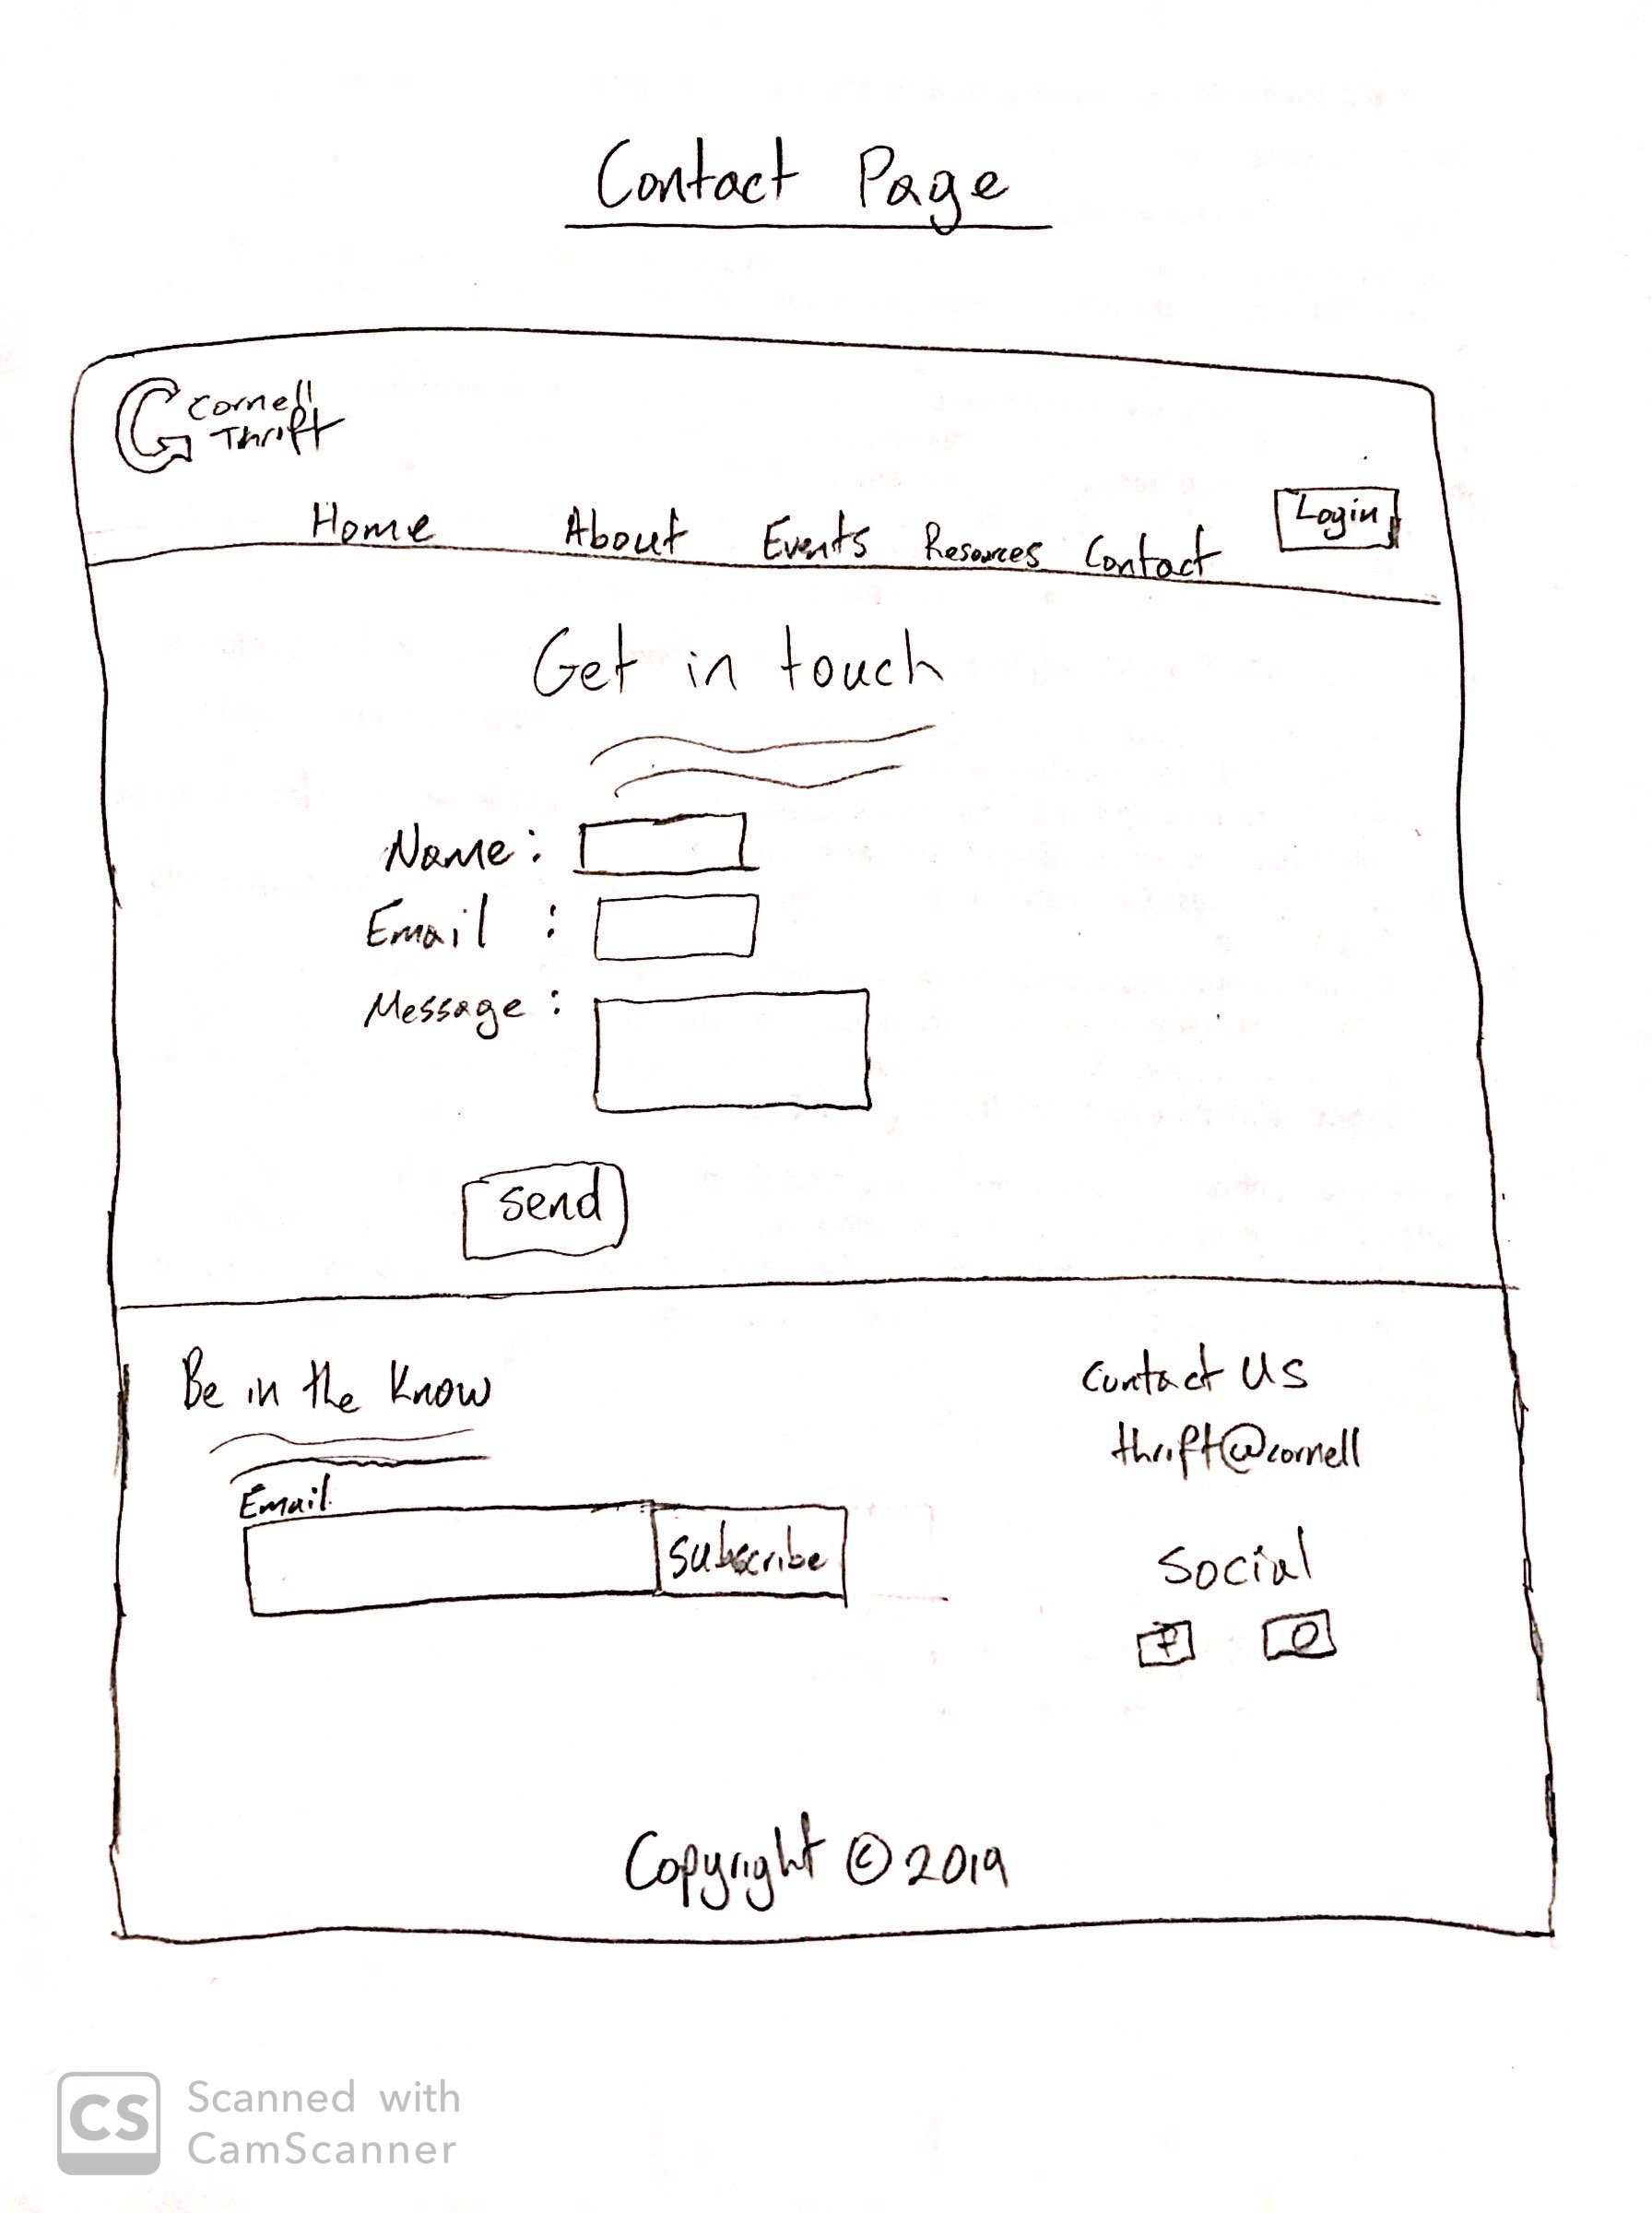 Contact Page
Cornell
Thrift
Home About Events Resources Contact Login
Get in touch
Name :
Email :
Message :
Send
Be in the Know
Email
Subscribe
Contact Us
thrift@cornell
Social
f
Copyright © 2019
CS Scanned with
CamScanner